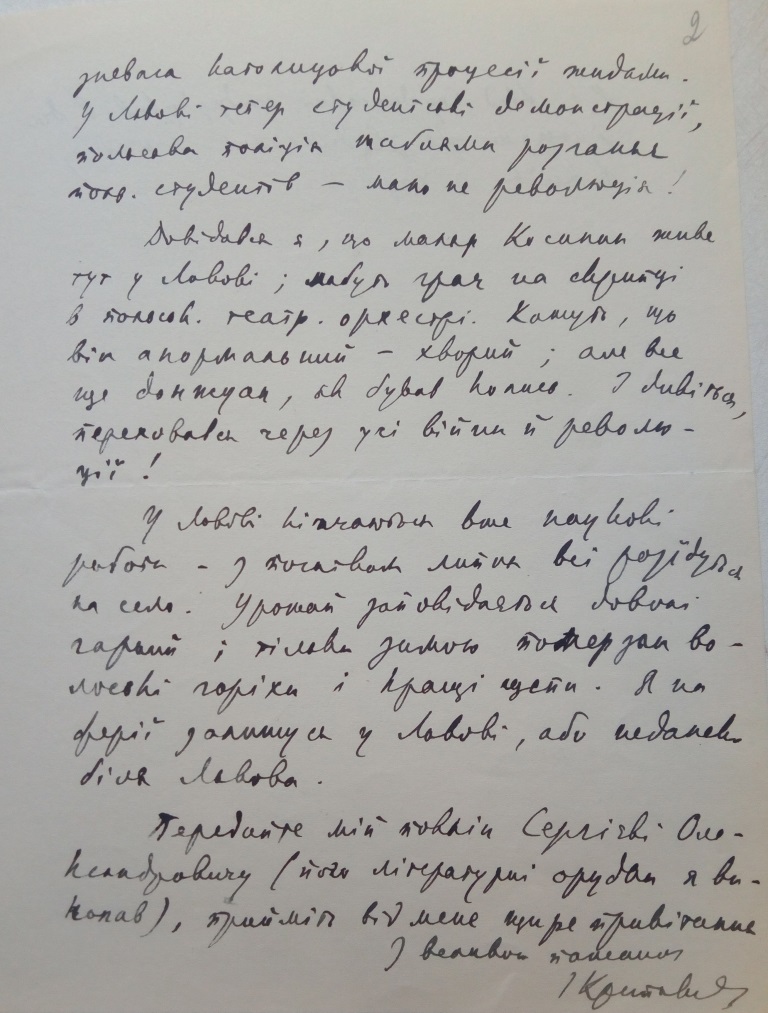 2
зневага католицької процесії жидами.
У Львові тепер студентські демонстрації,
польська поліція шаблями розганяє
поль. студентів – мало не революція!
Довідався я, що маляр Косинин живе
тут у Львові; мабуть грає на скрипці
в польськ. театр. оркестрі. Кажуть, що
він анормальний – хворий; але все
ще донжуан, як бував колись. І дивіться,
переховався через усі війни й револю-
ції!
У Львові кінчаються вже наукові
роботи – з початком липня всі розїдуться
на село. Урожай заповідається доволі
гарний; тільки зимою померзли во-
лоські горіхи і кращі щепи. Я на
ферії залишуся у Львові, або недалеко
біля Львова.
Передайте мій поклін Сергієві Оле-
ксандровичу (його літературні орудки я ви-
конав), прийміть від мене щире привітання
З великою пошаною
І Крипякевич